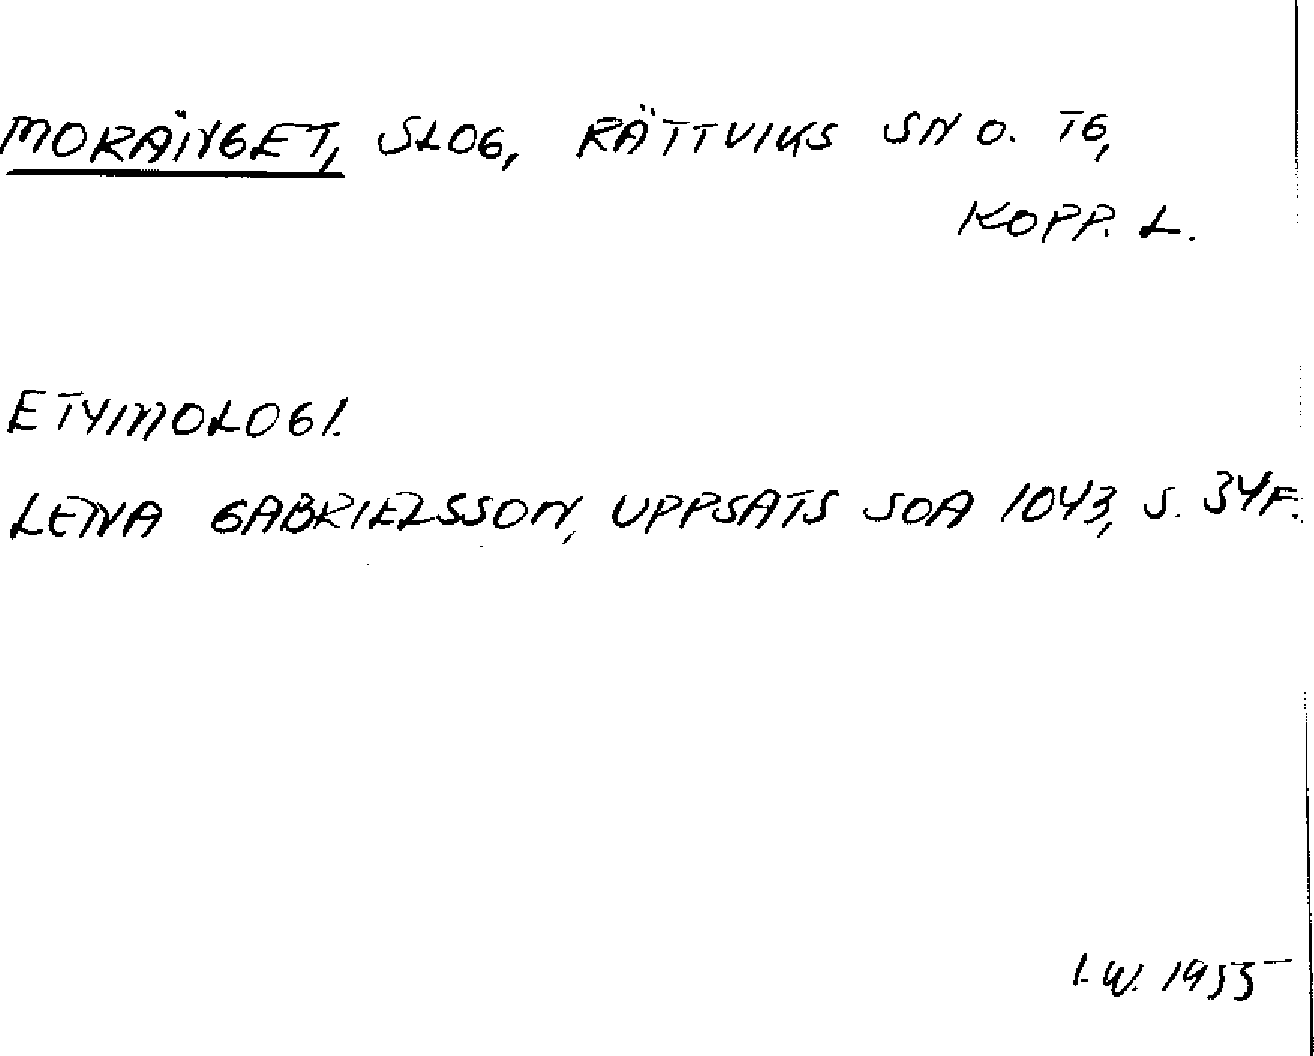 MORÄNGET, SLOG, RÄTTVIKS SN O. TG,
KOPP. L.
ETYMOLOGI.
LENA GABRIELSSON, UPPSATS SOA 1043, S. 34F.
I.W. 1955